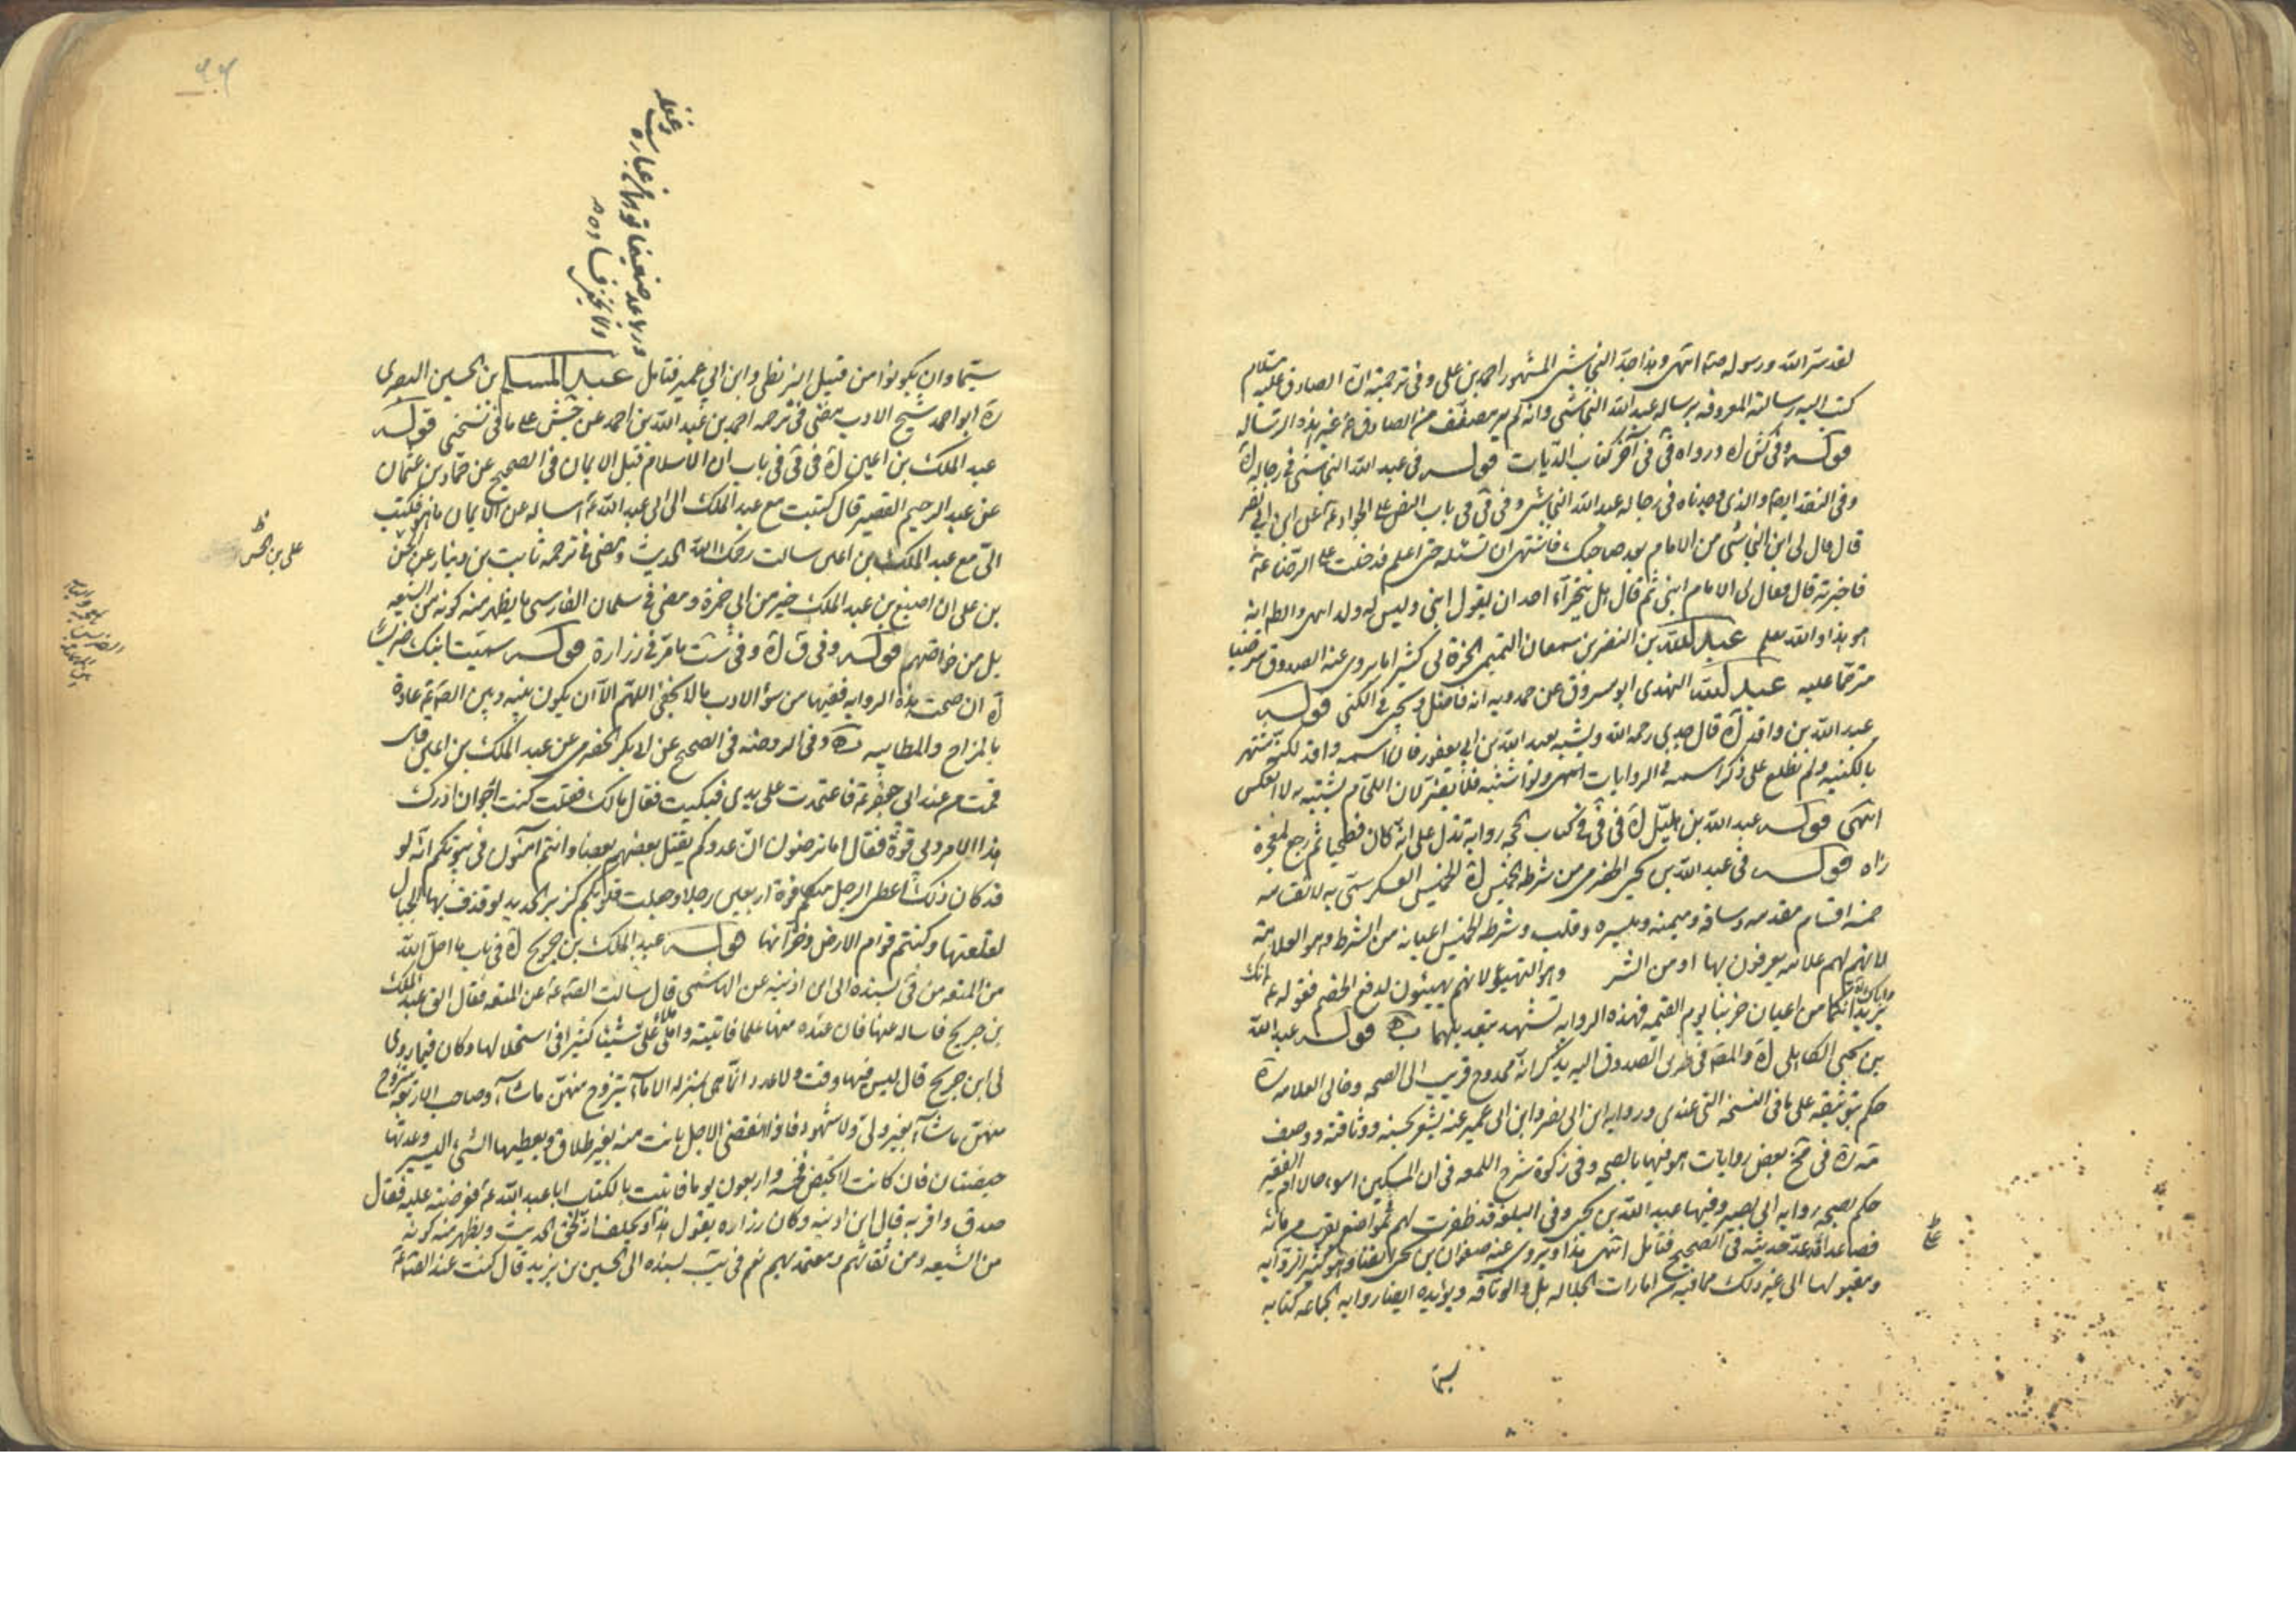 لقد سرّ الله ورسوله صه انتهى وهذا جدّ النجاشى المشهور احمد بن على وفى ترجمته انّ الصادق عليه السلام
كتب اليه رسالته المعروفه برساله عبد الله النجاشى وانه لم ير مصنّف من الصادق ع غير هذه الرساله
قوله وفى كش له ورواه فى فى آخر كتاب الديات قوله فى عبد الله النجاشى فى رجاله
وفى النقد ايضا والذى وجدناه فى رجاله عبد الله النجاشى وفى فى فى باب النص على الجواد ع عن ابن ابى نصر
قال قال لى ابن النجاشى من الامام بعد صاحبك فاشتهى ان تسئله حتى اعلم فدخلت على الرضا ع
فاخبرته قال فقال لى الامام ابنى ثم قال هل يتجرّء احد ان يقول ابنى وليس له ولد انتهى والظ انه
هو هذا والله يعلم عبد الله بن النضر بن سمعان التميمى الخ له كثيرا ما يروى عنه الصدوق مترضيا
مترحما عليه عبد الله النهدى ابو مسروق عن حمدويه انه فاضل ويجئ فى الكنى قوله
عبد الله بن واقد قال جدى رحمه الله ويشبه بعبد الله بن ابى يعفور فانّ اسمه واقد لكنه مشتهر
بالكنيه ولم نطلع على ذكر اسمه فى الروايات انتهى ولو اشتبه فلا يضر لان اللقم يشتبه به لا العكس
انتهى قوله عبد الله بن هليل له فى فى فى كتاب الحجه رواية تدل على انه كان فطحيا ثم رجع لمعجزة
راه قوله فى عبد الله بن يحيى الحضرمى من شرطه الخميس الخميس العسكر سمّى به لانه
خمسه اقسام مقدمه وساقه وميمنه وميسره وقلب وشرطه الخميس اعيانه من الشرط وهو العلامة
لانهم لهم علامه يعرفون بها او من الشرط وهو التهيؤ لانهم يهيئون لدفع الخصم فقوله ع انك
واباك من اعيان حزبنا يوم القيمه فهذه الروايه تشهد بتعديلهما قوله عبد الله
بن يحيى الكاهلى والمص فى طرق الصدوق اليه يذكر انه ممدوح قريب الى الصحه وخالى العلامه ره
حكم بتوثيقه على ما فى النسخه التى عندى وروايه ابن ابى نصر وابن ابى عمير عنه يشعر بحسنه ووثاقته ووصف
مة ره فى بعض روايات هو فيها بالصحه وفى زكوة شرح اللمعه فى ان المسكين اسوء حالا من الفقير
حكم بصحه روايه ابى بصير وفيها عبد الله بن يحيى وفى البلغه قد ظفرت لهم بمواضع تقرب من مائه
فصاعدا قد عدّ حديثه فى الصحيح فتامل انتهى هذا ويروى عنه صفوان بن يحيى ايضا وهو كثير الروايه
ومقبولها الى غير ذلك مما فيه من امارات الجلاله بل والوثاقه ويؤيده ايضا روايه الجماعه كتابه
سيّما
سيّما وان يكونوا من قبيل البزنطى وابن ابى عمير فتامل عبد المسلم بن الحسين البصرى
ره ابو احمد شيخ الادب مضى فى ترجمه احمد بن عبد الله بن احمد عن جش على ما فى نسختى قوله
عبد الملك بن اعين فى فى فى باب ان الاسلام قبل الايمان فى الصحيح عن حمّاد بن عثمان
عن عبد الرحيم القصير قال كتبت مع عبد الملك الى ابى عبد الله ع اساله عن الايمان ما هو فكتب
الىّ مع عبد الملك بن اعين سالت رحمك الله الحديث ومضى فى ترجمه ثابت بن دينار عن الحسن
بن على ان اصبغ بن عبد الملك خير من ابى حمزة ومضى فى سلمان الفارسى ما يظهر منه كونه من الشيعه
بل من خواصّهم قوله وفى ق وفى ست ما مرّ فى زرارة قوله سميت ابنك ضريسا
ان صحت هذه الروايه ففيها من سوء الادب ما لا يخفى اللهم الا ان يكون بينه وبين الص ع عادة
بالمزاح والمطايبه وفى الروضه فى الصحيح عن ابى بكر الحضرمى عن عبد الملك بن اعين قال
قمت من عند ابى جعفر ع فاعتمدت على يدى فبكيت فقال مالك فقلت كنت ارجو ان ادرك
هذا الامر وبى قوة فقال اما ترضون انّ عدوكم يقتل بعضهم بعضا وانتم آمنون فى بيوتكم انه لو
قد كان ذلك اعطى الرجل منكم قوة اربعين رجلا وجعلت قلوبكم كزبر الحديد لو قذف بها الجبال
لقلعتها وكنتم قوام الارض وخزّانها قوله عبد الملك بن جريح فى باب ما احلّ الله
من المتعه من فى بسنده الى ابن اذينه عن الهاشمى قال سالت الص ع عن المتعه فقال الق عبد الملك
بن جريح فاساله عنها فان عنده منها علما فاتيته واملى علىّ شيئا كثيرا فى استحلالها وكان فيما روى
لى ابن جريح قال ليس فيها وقت ولا عدد انّما هى بمنزله الاماء يتزوج منهنّ ما شاء وصاحب الاربع يتزوج
منهنّ ما شاء بغير ولىّ ولا شهود فاذا انقضى الاجل بانت منه بغير طلاق ويعطيها الشئ اليسير وعدتها
حيضتان فان كانت لا تحيض فخمسه واربعون يوما فاتيت بالكتاب ابا عبد الله ع فعرضته عليه فقال
صدق واقرّ به قال ابن اذينه وكان زراره يقول هذا ويحلف انه الحق الحديث ويظهر منه كونه
من الشيعه ومن ثقاتهم ومعتمديهم نعم فى يب بسنده الى الحسين بن يزيد قال كنت عند الص ع
على بن الحسن ظ